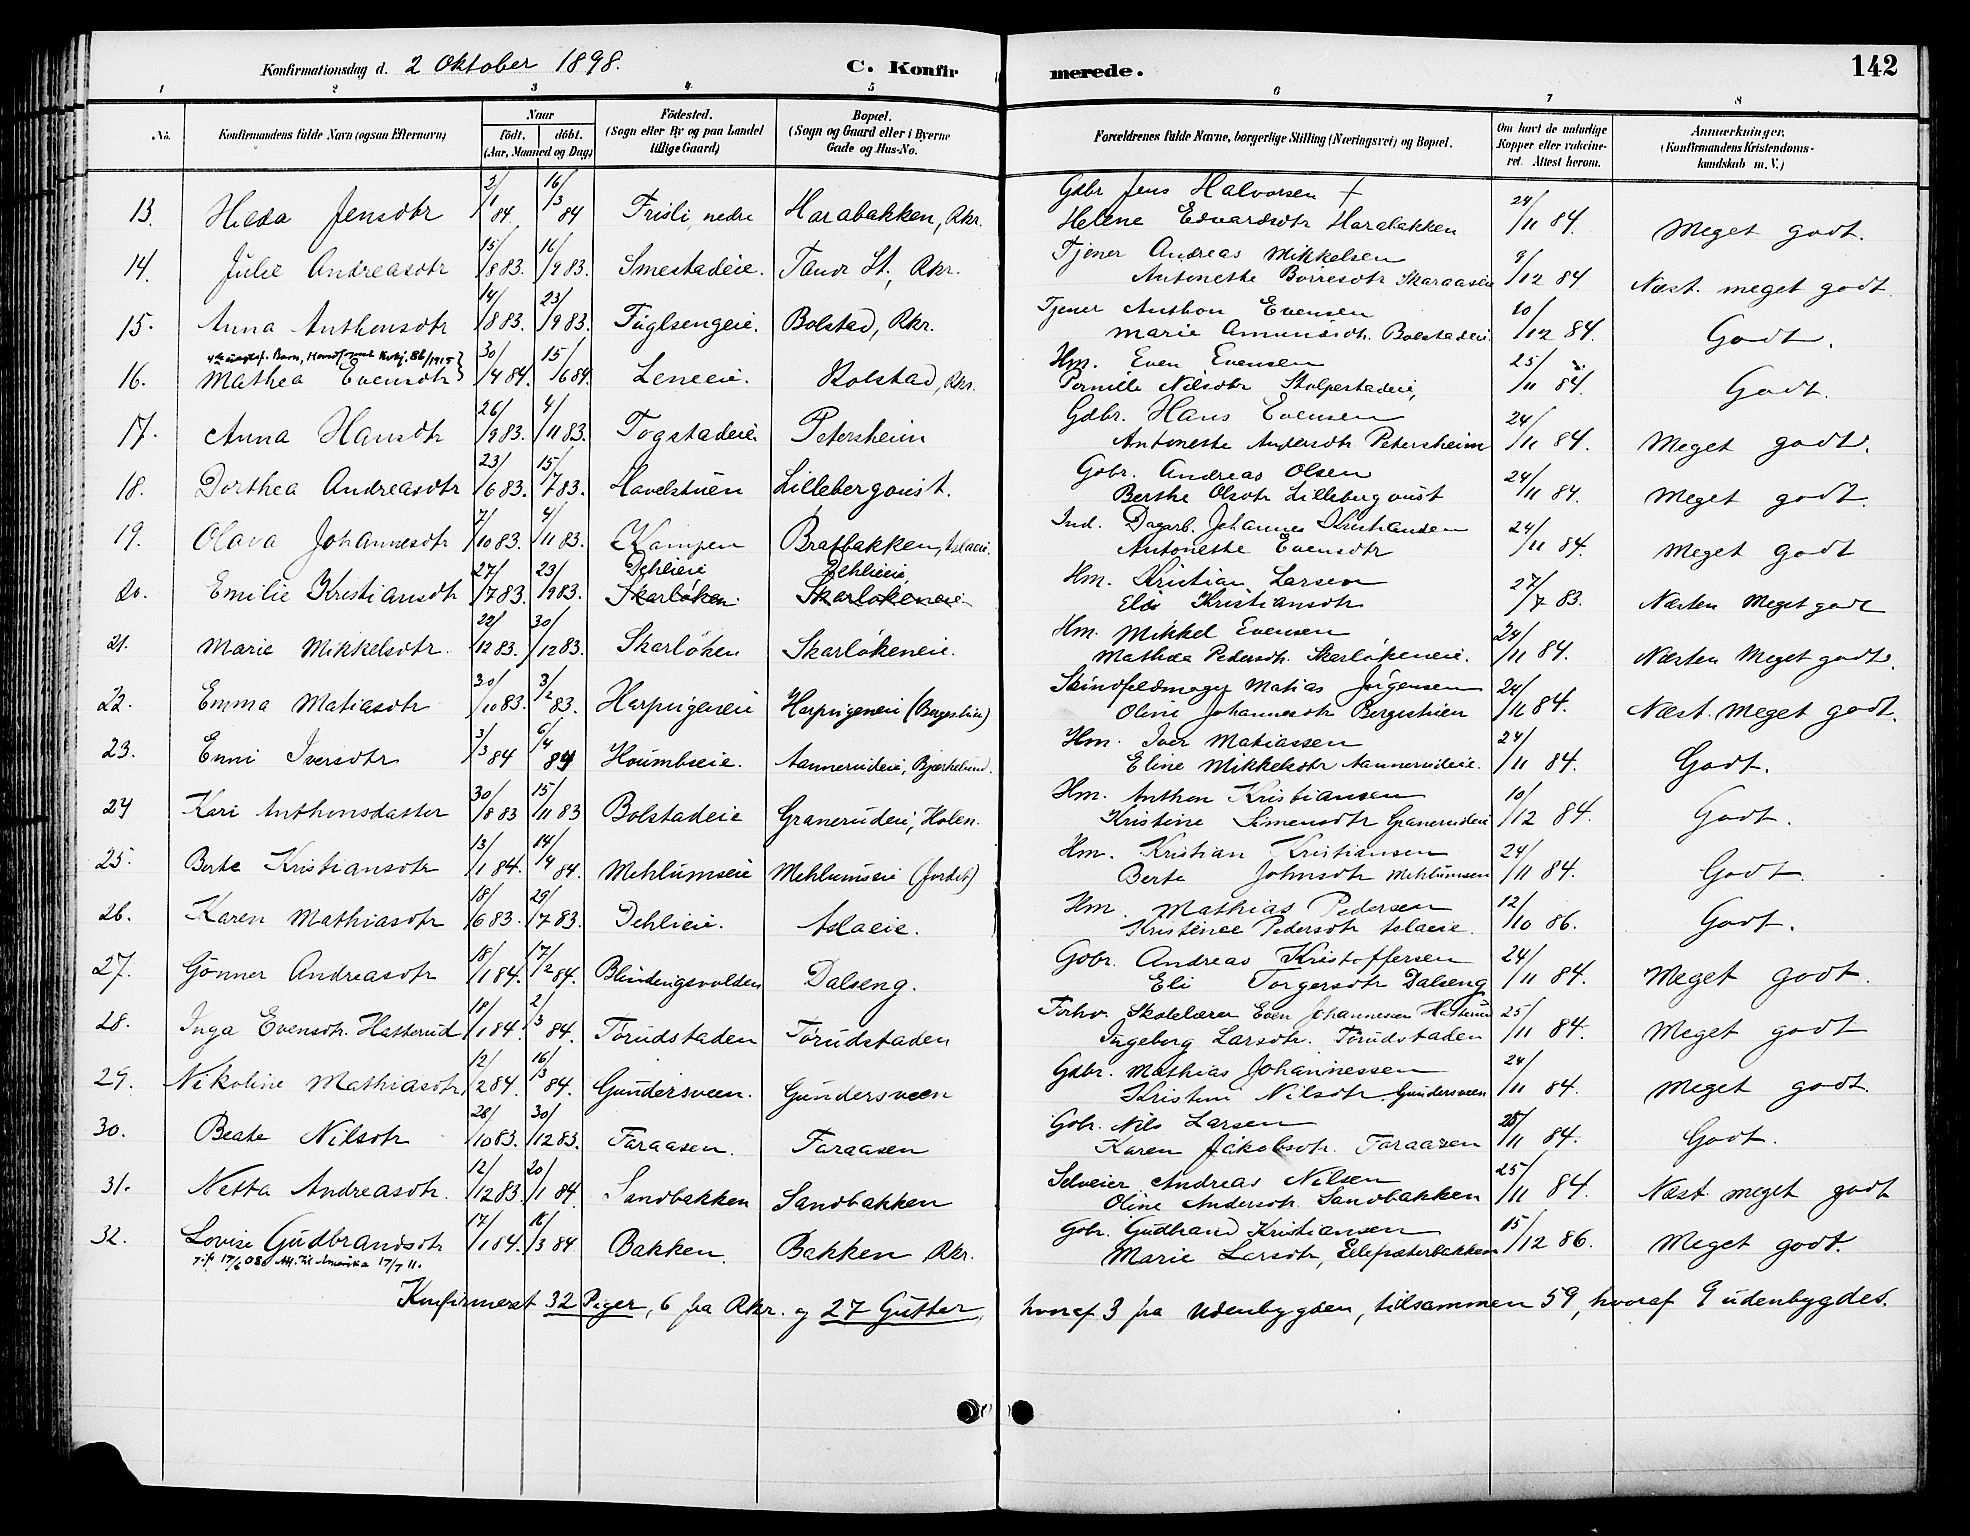 Konfirmationsdag d. 2 Oktober 1898. C. Konfir merede. 142
1 2 3 4 5 6 7 8
No. Konfirmandens fulde Navn (ogsaa Efternavn) Naar födt. döbt. (Aar, Maaned og Dag) Födested. (Sogn eller By og paa Landet tillige Gaard) Bopæl. (Sogn og Gaard eller i Byerne Gade og Hus-No. Forældrenes fulde Navne, borgerlige Stilling (Næringsvei) og Bopæl. Om havt de naturlige Kopper eller vaccineret. Attest herom. Anmærkninger. (Konfirmandens Kristendomskundskab m. V.)
13. Hilda Jensdtr 2/1 84. 16/3 84 Frisli, nedre Harabakken, Rkr. Gdbr Jens Halvorsen +
Helene Edvardsdtr Harabakken 24/11 84. Meget godt.
14. Julie Andreasdtr 15/8 83. 16/9 83. Smestadeie. Tande St., Rkr. Tjener Andreas Mikkelsen
Antonette Börresdtr Skaraasen 9/12 84 Næst. meget godt.
15. Anna Anthonsdtr 14/8 83. 23/9 83. Fuglsengeie. Bolstad, Rkr. Tjener Anthon Evensen
Marie Amundsdtr. Bolstadeie 10/12 84. Godt.
16. Mathea Evensdtr 30/4 84. 15/6 84. Leneeie. Bolstad, Rkr. Hm. Even Evensen
Pernille Nilsdtr Stolpestadeie, 25/11 84. Godt.
17. Anna Hansdtr 26/9 83. 4/11 83. Togstadeie Petersheim Gdbr. Hans Evensen
Antonette Andersdtr Petersheim 24/11 84. Meget godt.
18. Dorthea Andreasdtr 23/6 83. 15/7 83. Havelstuen Lillebergqvist. Gdbr. Andreas Olsen
Berthe Olsdtr Lillebergqvist 24/11 84. Meget godt.
19. Olava Johannesdtr 7/10 83. 4/11 83. Kampen Bratbakken, Aslaeie. Ind. Dagarb. Johannes Kristiansen
Antonette Evensdtr 24/11 84. Meget godt
20. Emilie Kristiansdtr 27/7 83. 23/9 83. Dehlieie Skarlöken. Dehlieie, Skarlökeneie Hm. Kristian Larsen
Elis Kristiansdtr 27/7 83. Næsten Meget godt
21. Marie Mikkelsdtr. 22/12 83. 30/12 83. Skarlöken Skarlökeneie. Hm. Mikkel Evensen
Mathea Pedersdtr. Skarlökeneie. 24/11 84. Næsten Meget godt.
22. Emma Matiasdtr 30/10 83. 3/12 83. Harpvigeneie Harpvigeneie (Bergestuen) Skindfeldmager Matias Jörgensen
Oline Johannesdtr Bergestuen 24/11 84. Næst. Meget godt.
23. Enni Iversdtr 3/3 84 6/4 84 Houmbseie. Aannerudeie, Bjærkelund. Hm. Iver Matiassen
Eline Mikkelsdtr Aannerudeie. 24/11 84. Godt.
24 Kari Anthonsdatter 30/8 83 15/11 83 Bolstadeie Granerudeie, Holen. Hm. Anthon Kristiansen
Kristine Simensdtr Granerudeie 10/12 84. Godt.
25. Berte Kristiansdtr 13/1 84. 14/4 84. Mehlumseie Mehlumseie (Jordet) Hm. Kristian Kristiansen
Berte Johnsdtr Mehlumseie 24/11 84. Godt.
26. Karen Mathiasdtr 18/6 83. 29/7 83. Dehlieie. Aslaeie. Hm. Mathias Pedersen
Kristence Pedersdtr Aslaeie. 12/10 86. Godt.
27. Gönner Andreasdtr 18/1 84. 17/2 84. Blindingsvolden Dalseng. Gdbr. Andreas Kristoffersen
Eli Torgersdtr Dalseng 24/11 84. Meget godt.
28. Inga Evensdtr. Hatterud 18/1 84. 2/3 84. Törudstaden Törudstaden Forhv. Skolelærer Even Johannesen Hatterud
Ingeborg Larsdtr. Törudstaden 25/11 84. Meget godt
29. Nikoline Mathiasdtr 12/2 84. 16/3 84. Gundersveen. Gundersveen Gdbr. Mathias Johannessen
Kristine Nilsdtr. Gundersveen 24/11 84. Meget godt.
30. Beate Nilsdtr 28/10 83. 30/12 83. Faraasen. Faraasen Gdbr. Nils Larsen
Karen Jakobsdtr. Faraasen 25/11 84. Godt.
31. Netta Andreasdtr. 12/12 83. 20/1 84. Sandbakken Sandbakken Selveier Andreas Nilsen
Oline Andersdtr. Sandbakken 25/11 84. Næst. meget godt
32. Lovise Gudbrandsdtr 17/1 84. 16/3 84. Bakken. Bakken Rkr. Gdbr. Gudbrand Kristiansen
gift 17/6 08. Att. til Amerika 17/7 11. Marie Larsdtr, Eilefsæterbakken 15/12 86. Meget godt.
Konfirmeret 32 Piger, 6 fra Rkr. og 27 Gutter, hvoraf 3 fra Udenbygden, tilsammen 59, hvoraf 9 udenbygdes.